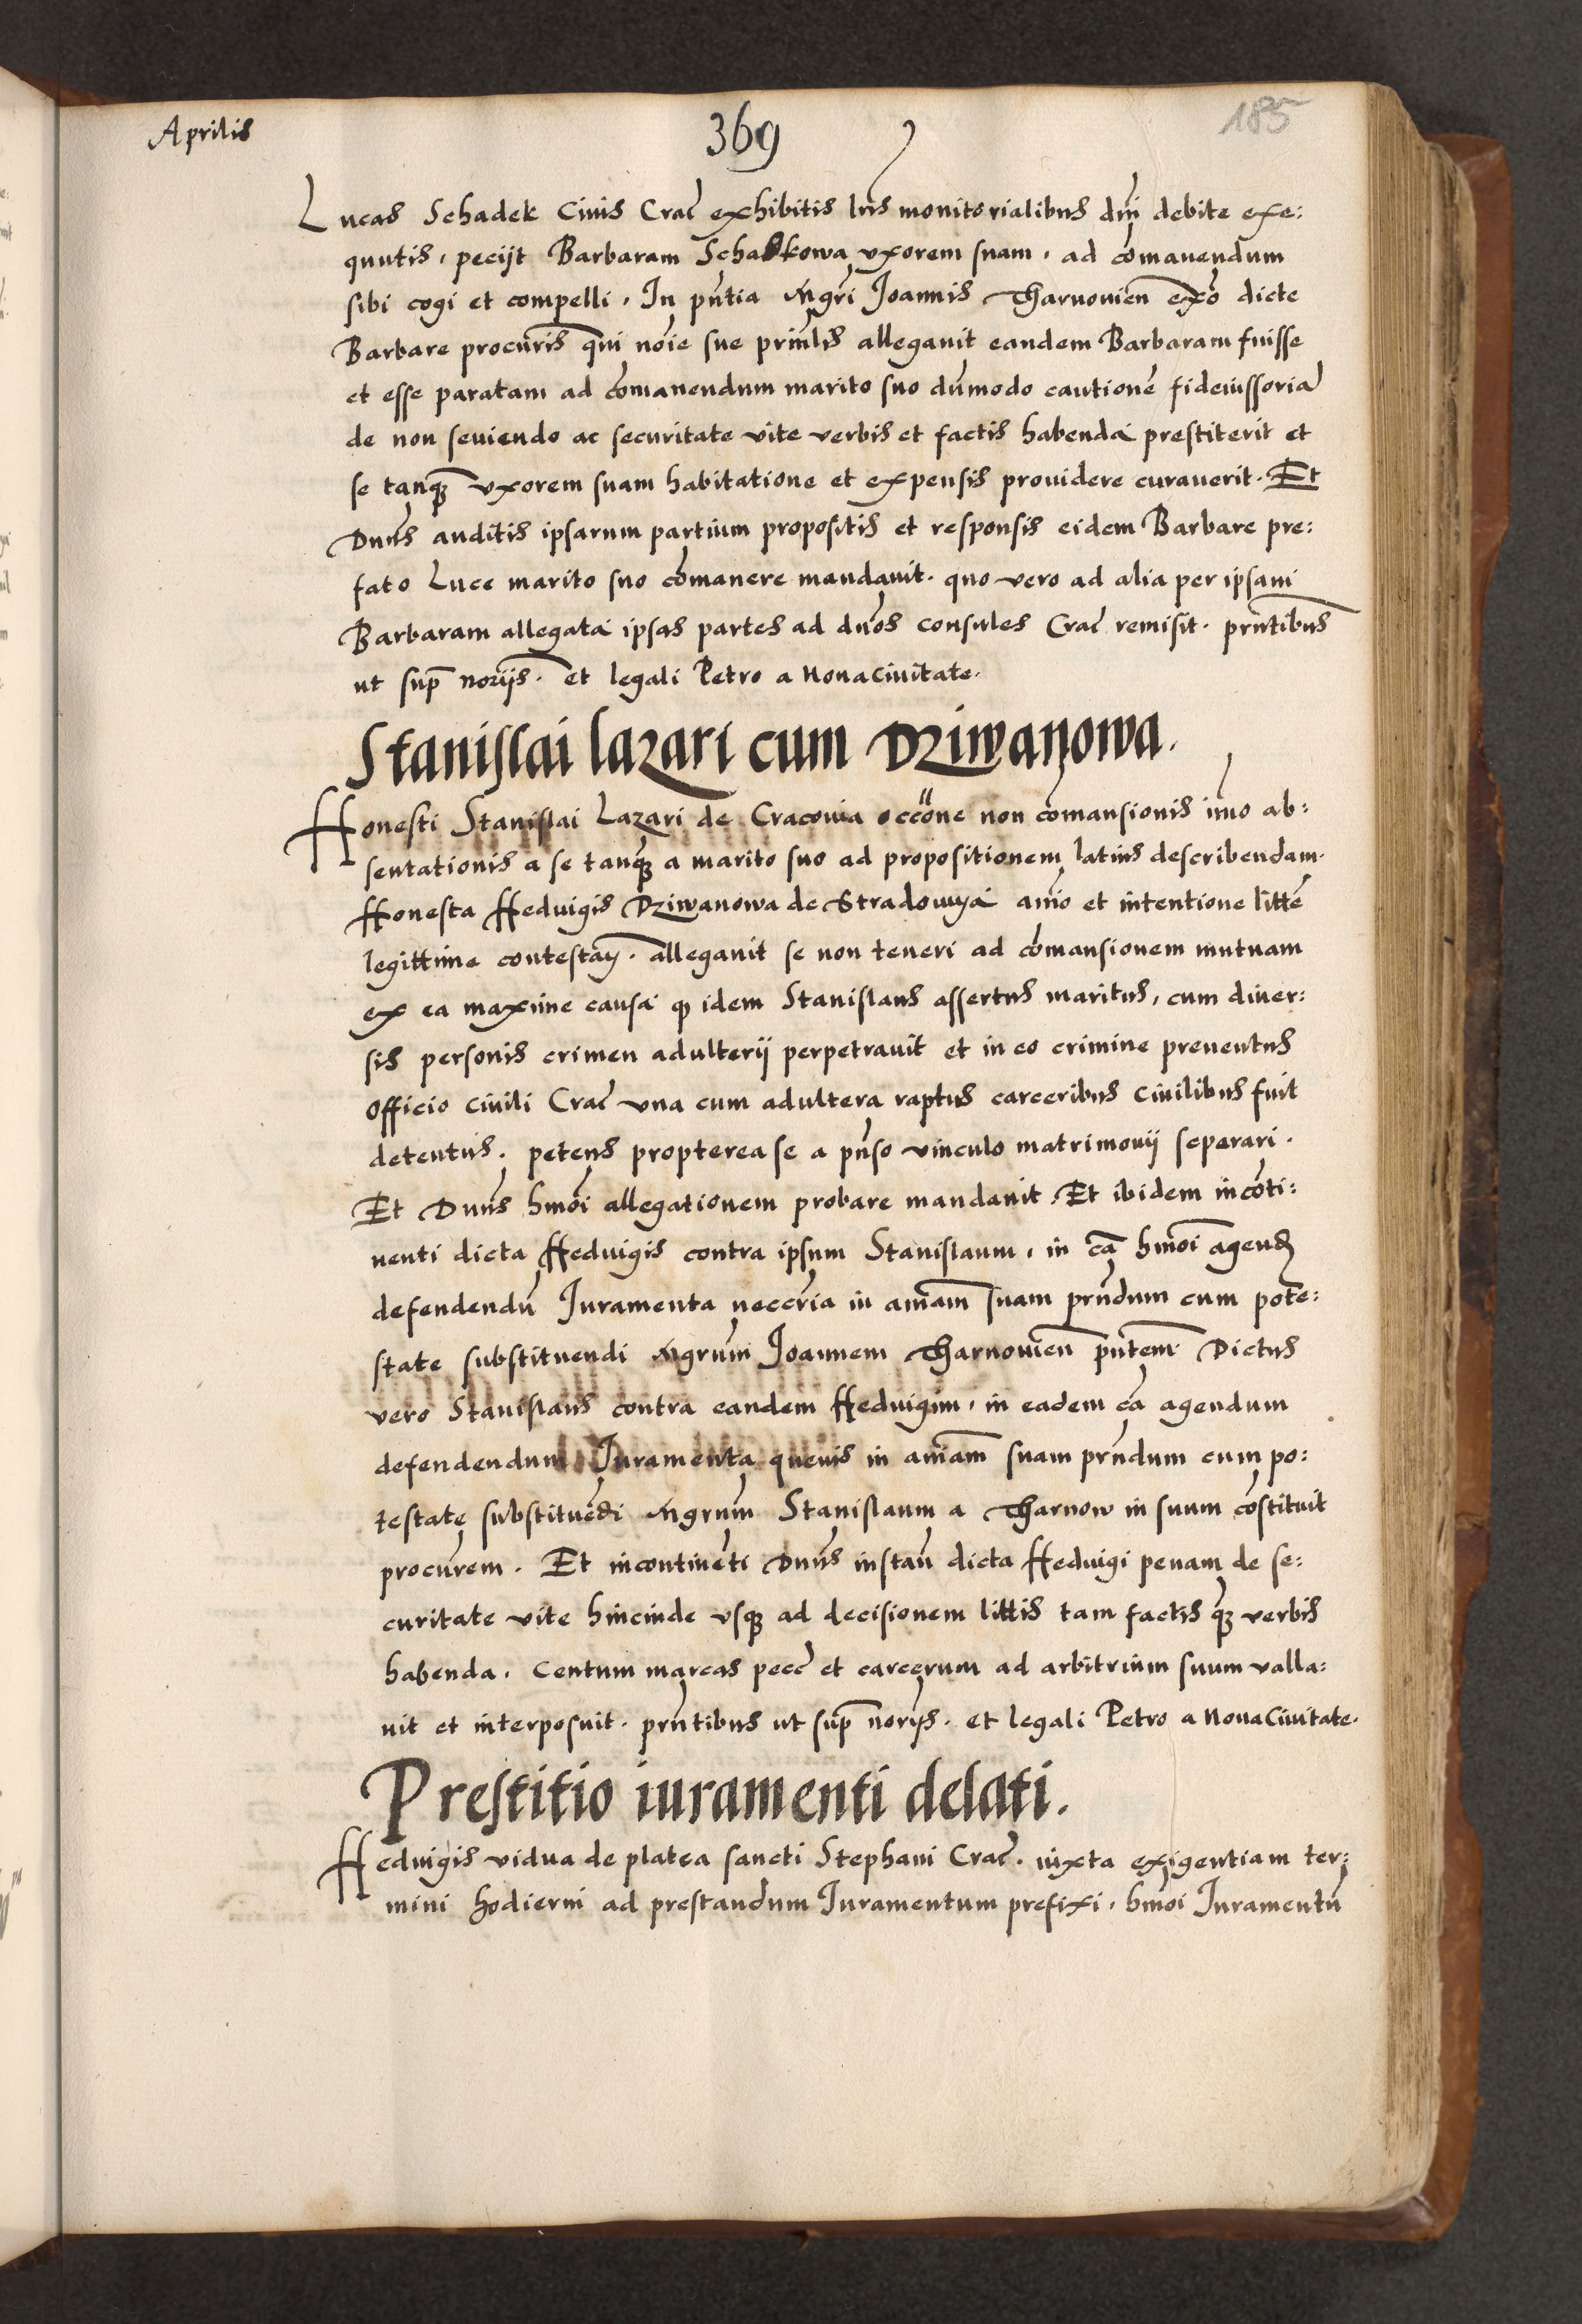 Aprilis
369
185
Lucas Schadek Civis Crac̄ exhibitis lr̄is monitorialibus dnj̄ debite exe:
quutis, pecijt Barbaram Schadkowa uxorem suam, ad cōmanendum
sibi cogi et compelli. In pn̄tia Mgrī Joannis Tharnovien̄ ex̄o dicte
Barbare procurīs quī noīe sue prinlīs allegavit eandem Barbaram fuisse
et esse paratam ad cōmanendum marito suo dūmodo cautionē fideiussoriā
de non seviendo ac securitate vite verbis et factis habenda prestiterit et
se tanqȝ uxorem suam habitatione et expensis providere curaverit. Et
Dnūs auditis ipsarum partium propositis et responsis eidem Barbare pre:
fato Luce marito suo cōmanere mandavit. quo vero ad alia per ipsam
Barbaram allegata ipsas partes ad dnōs consules Crac̄ remisit. prn̄tibus
ut sup̄ norijs̄. et legali Petro a Nova Civitate.
Stanislai lazari cum Dziwanowa.
Honesti Stanislai Lazari de Cracovia occōne non cōmansionis im̄o ab:
sentationis a se tanqȝ a marito suo ad propositionem latius describendam.
Honesta Hedvigis Dziwanowa de Stradomya amīo et intentione littē
legittime contestan̄. allegavit se non teneri ad cōmansionem mutuam
ex ea maxime causa qꝫ idem Stanislaus assertus maritus, cum diver:
sis personis crimen adulterij perpetravit et in eo crimine preventus
officio civili Crac̄ una cum adultera raptus carceribus Civilibus fuit
detentus. petens propterea se a pn̄so vinculo matrimonij separari.
Et Dnūs hmōi allegationem probare mandavit. Et ibidem incōti:
nenti dicta Hedvigis contra ipsum Stanislaum, in cā hmōi agend̄
defendendū Iuramenta neccrīa in amām suam prn̄dum cum pote:
state substituendi Mgrūm Joannem Tharnovien̄ pn̄tem Dictus
vero Stanislaus contra eandem Hedvigim, in eadem cā agendum
defendendum Iuramenta quevis in amām suam prn̄dum cum po:
testate substituēdi Mgrūm Stanislaum a Tharnow in suum cōstituit
procurēm. Et incontinēti Dnūs instan̄ dicta Hedvigi penam de se:
curitate vite hincinde usqȝ ad decisionem littis tam factis qȝ verbis
habenda. Centum marcas pecc̄ et carcerum ad arbitrium suum valla:
vit et interposuit. prn̄tibus ut sup̄ norijs̄. et legali Petro a Nova Civitate.
Prestitio iuramenti delati.
Hedvigis vidua de platea sancti Stephani Crac̄. iuxta exigentiam ter:
mini hodierni ad prestandum Iuramentum prefixi, hmōi Iuramentū